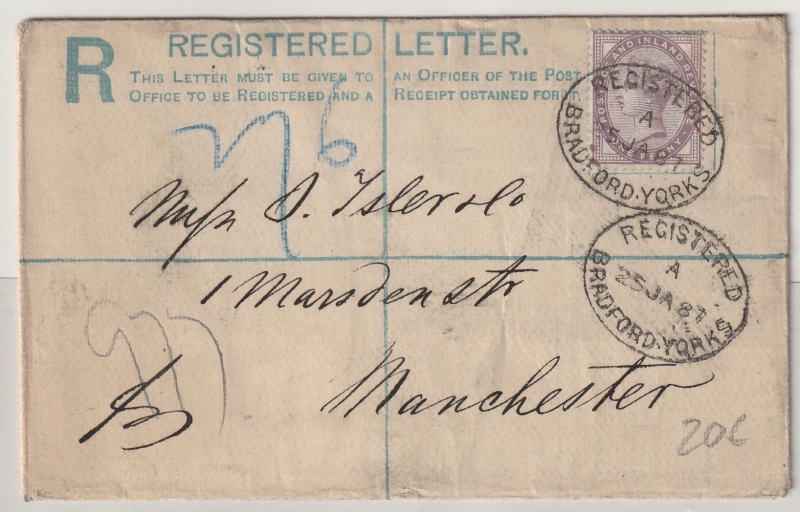 R REGISTERED LETTER.
THIS LETTER MUST BE GIVEN TO AN OFFICER OF THE POST
OFFICE TO BE REGISTERED AND A RECEIPT OBTAINED FOR IT.
POSTAGE AND INLAND REV
REGISTERED
A
25 JA 87
BRADFORD·YORKS
Isler & Co
1 Marsden str
Manchester
REGISTERED
A
25 JA 87
BRADFORD·YORKS
20€